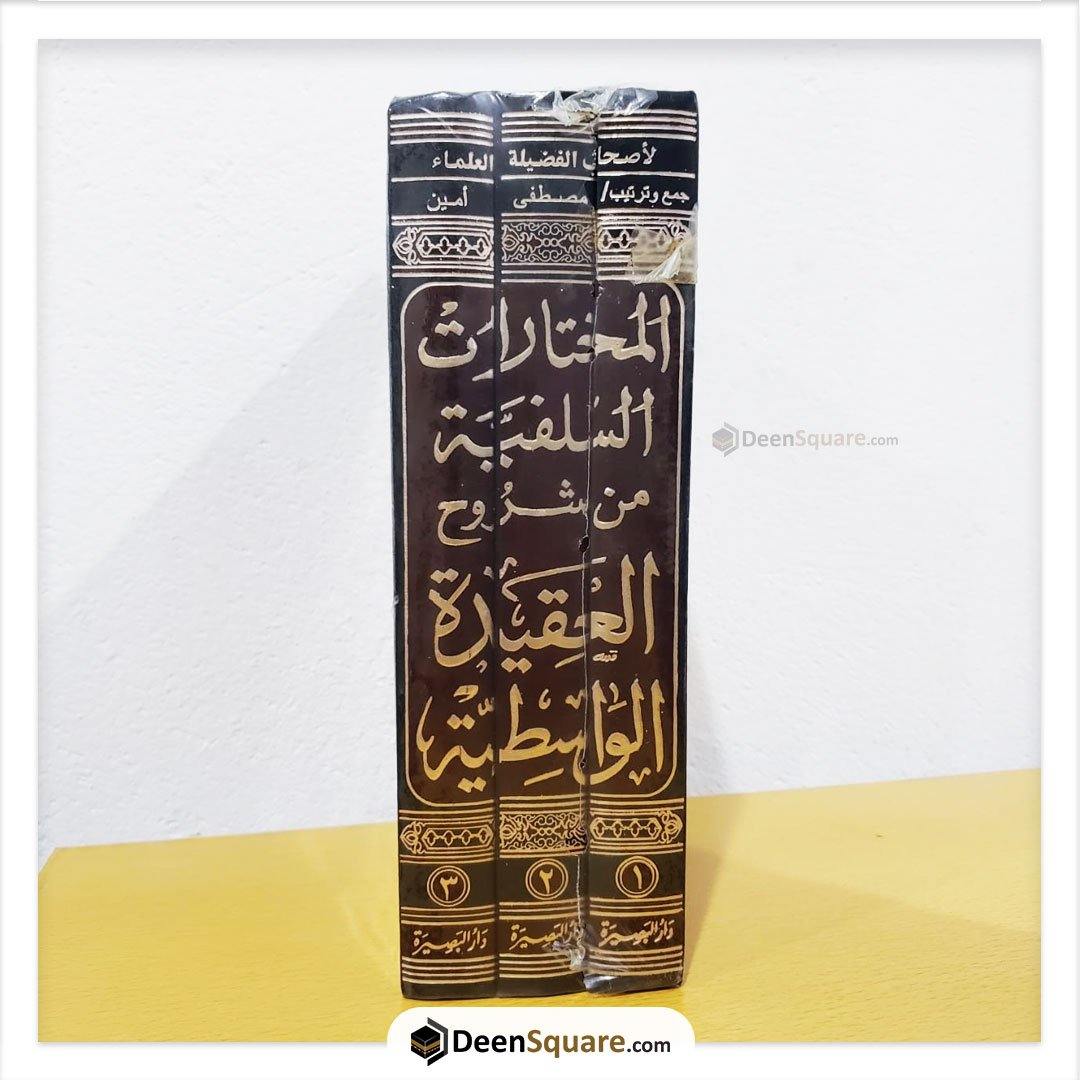 لأصحاب الفضيلة العلماء
جمع وترتيب/ مصطفى أمين
المختارات
السلفية
من شروح
العقيدة
الواسطية
١ ٢ ٣
دار البصيرة دار البصيرة دار البصيرة
DeenSquare.com
DeenSquare.com